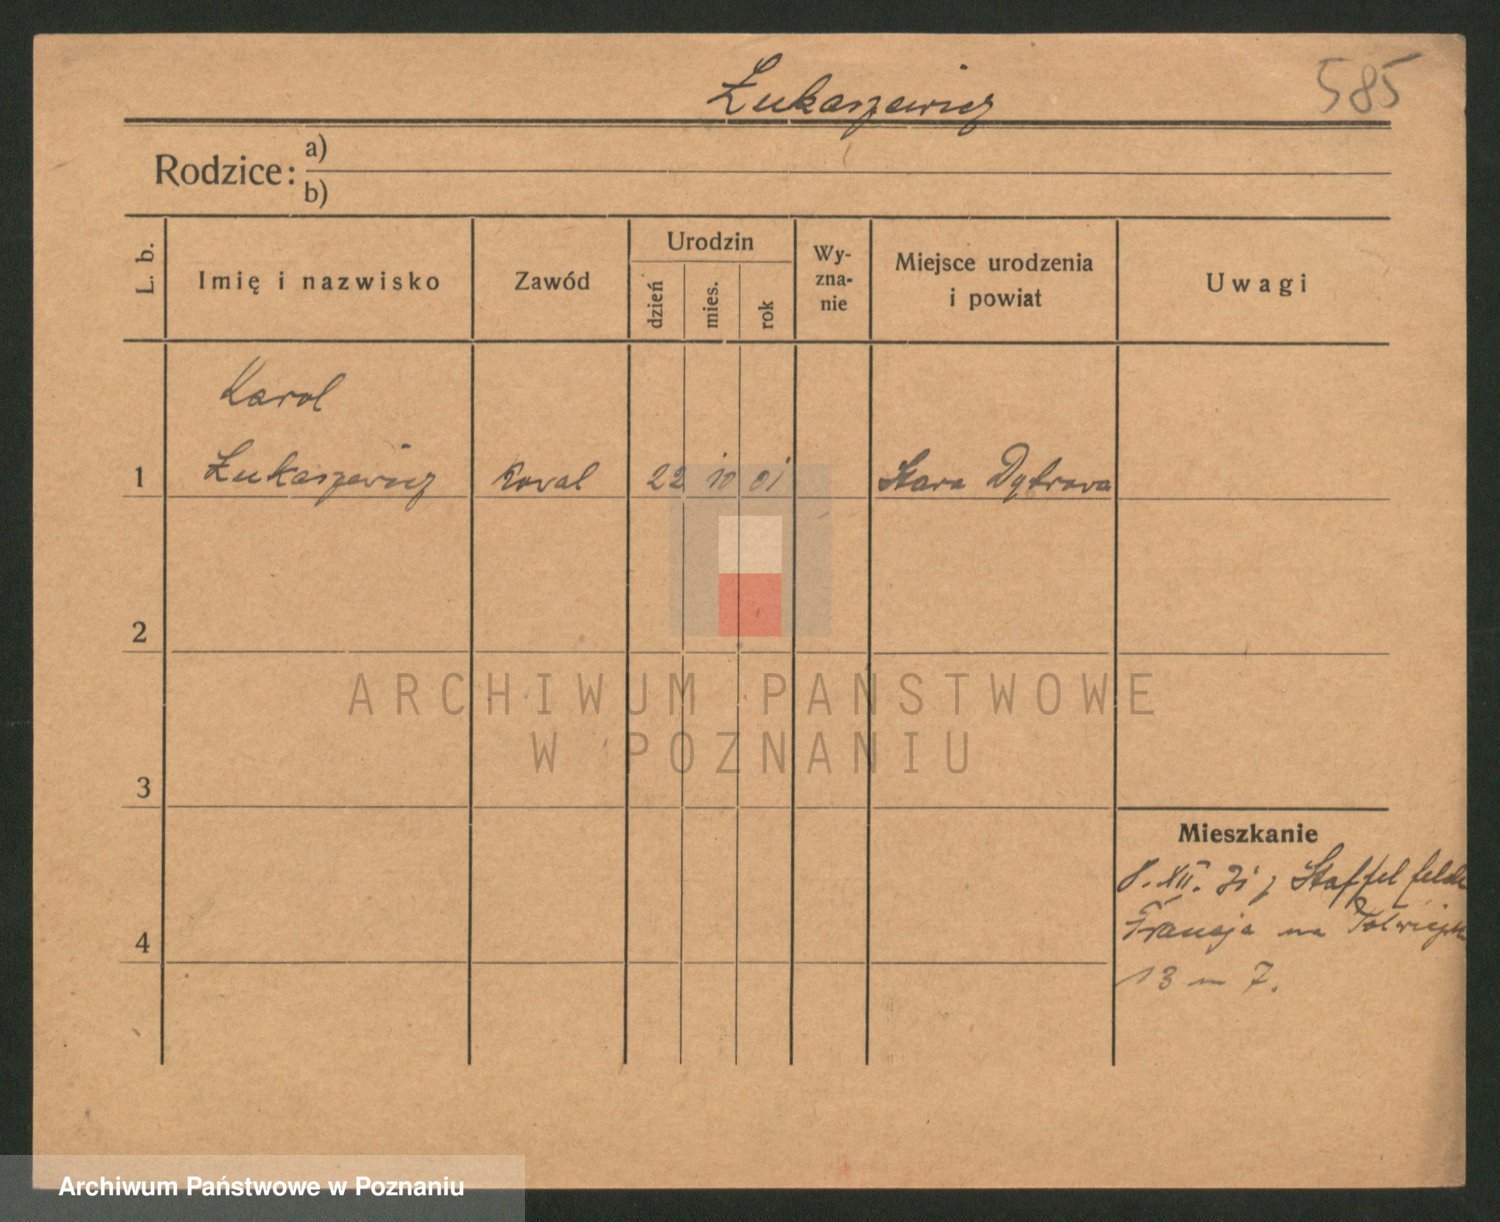 Łukaszewicz
585
Rodzice: a)
b)
L. b.
Imię i nazwisko
Zawód
Urodzin
dzień
mies.
rok
Wy-
zna-
nie
Miejsce urodzenia
i powiat
Uwagi
Karol
1 Łukaszewicz Koval 22 10 01 Stara Dąbrova
2
ARCHIWUM PAŃSTWOWE
W POZNANIU
3
Mieszkanie
8. XII. 31 z Staffelfelde
4 Francja na
13 m 7.
Archiwum Państwowe w Poznaniu